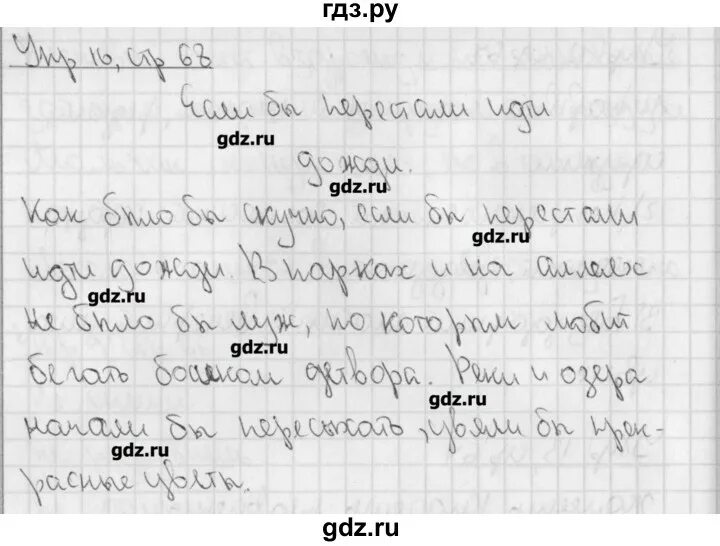 гдз.ру
Упр 16, стр 68
Если бы перестали идти
gdz.ru
дожди.
gdz.ru
Как было бы скучно, если бы перестали
gdz.ru
идти дожди. В парках и на аллеях
gdz.ru
не было бы луж, по которым любит
gdz.ru
бегать босиком детвора. Реки и озера
gdz.ru
начали бы пересыхать, увяли бы прек-
gdz.ru
расные цветы.
gdz.ru